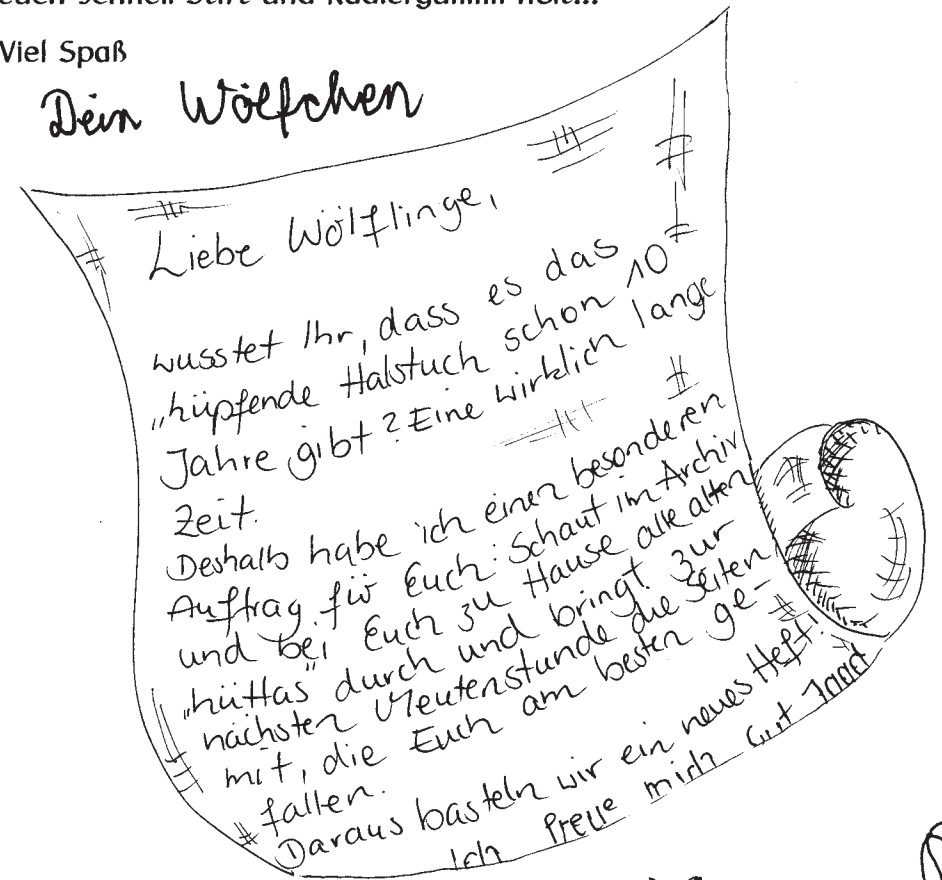 Viel Spaß
Dein Wölfchen
Liebe Wölflinge,
wusstet Ihr, dass es das
„hüpfende Halstuch schon 10
Jahre gibt? Eine wirklich lange
Zeit.
Deshalb habe ich einen besonderen
Auftrag für Euch: Schaut im Archiv
und bei Euch zu Hause alle alten
„hüHas" durch und bringt zur
nächsten Meutenstunde die Seiten
mit, die Euch am besten ge-
fallen.
Daraus basteln wir ein neues Heft!
Ich freue mich Gut Jagd